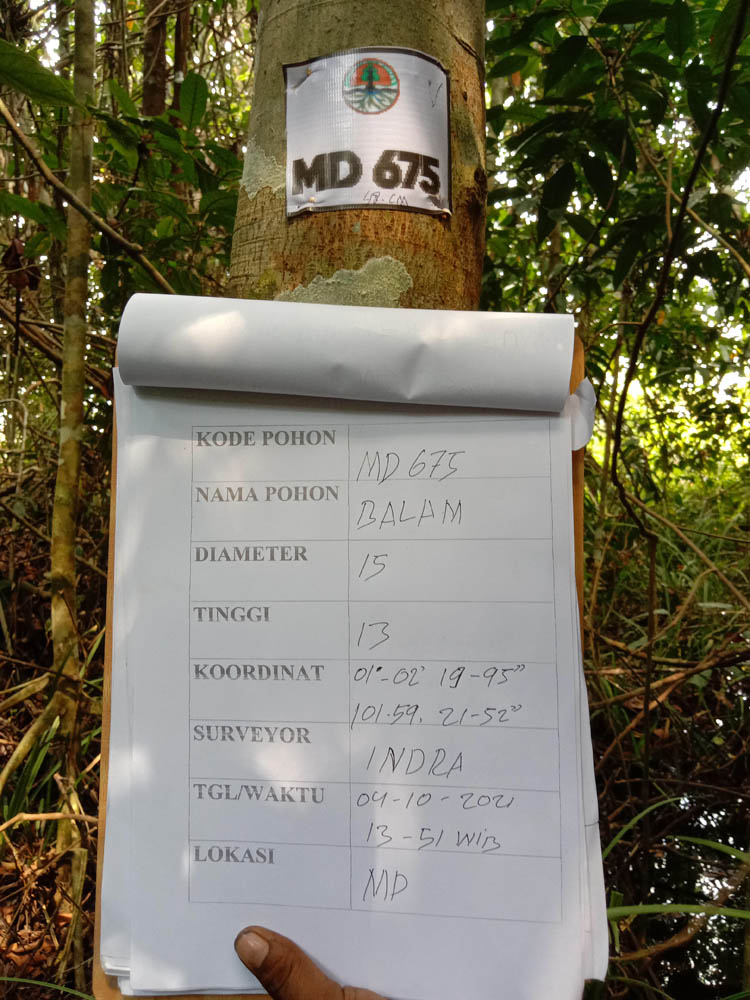 MD 675
48. CM
KODE POHON MD 675
NAMA POHON BALAM
DIAMETER 15
TINGGI 13
KOORDINAT 01°-02' 19-95"
101.59. 21-52"
SURVEYOR INDRA
TGL/WAKTU 04-10-2021
13-51 WIB
LOKASI MD